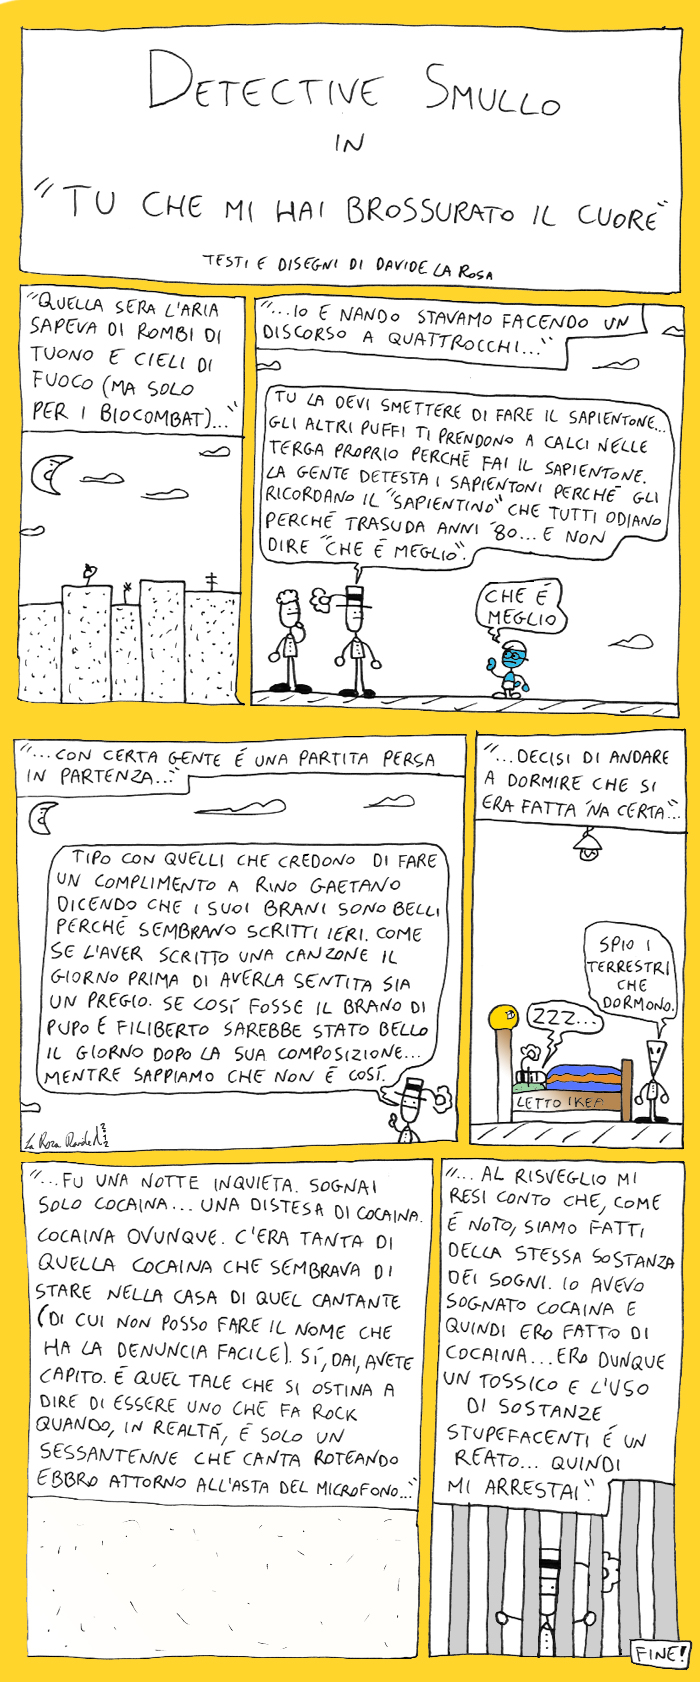 DETECTIVE SMULLO
IN
"TU CHE MI HAI BROSSURATO IL CUORE"
TESTI E DISEGNI DI DAVIDE LA ROSA
"QUELLA SERA L'ARIA
SAPEVA DI ROMBI DI
TUONO E CIELI DI
FUOCO (MA SOLO
PER I BIOCOMBAT)..."
"...IO E NANDO STAVAMO FACENDO UN
DISCORSO A QUATTROCCHI..."
TU LA DEVI SMETTERE DI FARE IL SAPIENTONE...
GLI ALTRI PUFFI TI PRENDONO A CALCI NELLE
TERGA PROPRIO PERCHÉ FAI IL SAPIENTONE.
LA GENTE DETESTA I SAPIENTONI PERCHÉ GLI
RICORDANO IL "SAPIENTINO" CHE TUTTI ODIANO
PERCHÉ TRASUDA ANNI '80... E NON
DIRE "CHE É MEGLIO".
CHE É
MEGLIO
"...CON CERTA GENTE É UNA PARTITA PERSA
IN PARTENZA..."
TIPO CON QUELLI CHE CREDONO DI FARE
UN COMPLIMENTO A RINO GAETANO
DICENDO CHE I SUOI BRANI SONO BELLI
PERCHÉ SEMBRANO SCRITTI IERI. COME
SE L'AVER SCRITTO UNA CANZONE IL
GIORNO PRIMA DI AVERLA SENTITA SIA
UN PREGIO. SE COSÍ FOSSE IL BRANO DI
PUPO E FILIBERTO SAREBBE STATO BELLO
IL GIORNO DOPO LA SUA COMPOSIZIONE...
MENTRE SAPPIAMO CHE NON É COSÍ.
La Rosa Davide
"...DECISI DI ANDARE
A DORMIRE CHE SI
ERA FATTA 'NA CERTA"...
SPIO I
TERRESTRI
CHE
DORMONO.
ZZZ...
LETTO IKEA
"...FU UNA NOTTE INQUIETA. SOGNAI
SOLO COCAINA... UNA DISTESA DI COCAINA.
COCAINA OVUNQUE. C'ERA TANTA DI
QUELLA COCAINA CHE SEMBRAVA DI
STARE NELLA CASA DI QUEL CANTANTE
(DI CUI NON POSSO FARE IL NOME CHE
HA LA DENUNCIA FACILE). SÍ, DAI, AVETE
CAPITO. É QUEL TALE CHE SI OSTINA A
DIRE DI ESSERE UNO CHE FA ROCK
QUANDO, IN REALTÁ, É SOLO UN
SESSANTENNE CHE CANTA ROTEANDO
EBBRO ATTORNO ALL'ASTA DEL MICROFONO..."
"... AL RISVEGLIO MI
RESI CONTO CHE, COME
É NOTO, SIAMO FATTI
DELLA STESSA SOSTANZA
DEI SOGNI. IO AVEVO
SOGNATO COCAINA E
QUINDI ERO FATTO DI
COCAINA... ERO DUNQUE
UN TOSSICO E L'USO
DI SOSTANZE
STUPEFACENTI É UN
REATO... QUINDI
MI ARRESTAI."
FINE!